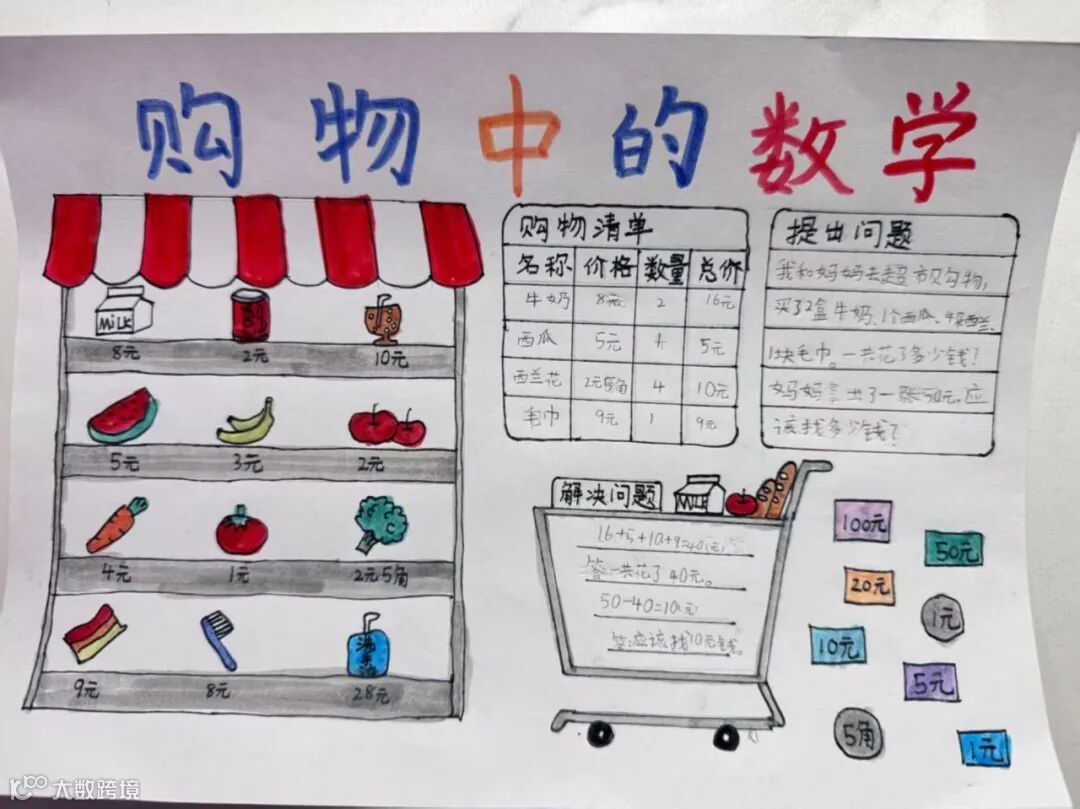 购物中的数学
MiLK
8元 2元 10元
5元 3元 2元
4元 1元 2元5角
9元 8元 28元
购物清单
名称 价格 数量 总价
牛奶 8元 2 16元
西瓜 5元 1 5元
西兰花 2元5角 4 10元
毛巾 9元 1 9元
提出问题
我和妈妈去超市购物,
买了2盒牛奶、1个西瓜、4朵西兰、
1块毛巾。一共花了多少钱?
妈妈拿出了一张50元,应
该找多少钱?
解决问题
MiLK
16+5+10+9=40(元)
答:一共花了40元。
50-40=10(元)
答:应该找10元钱。
100元
50元
20元
1元
10元
5元
5角
1元
大数跨境